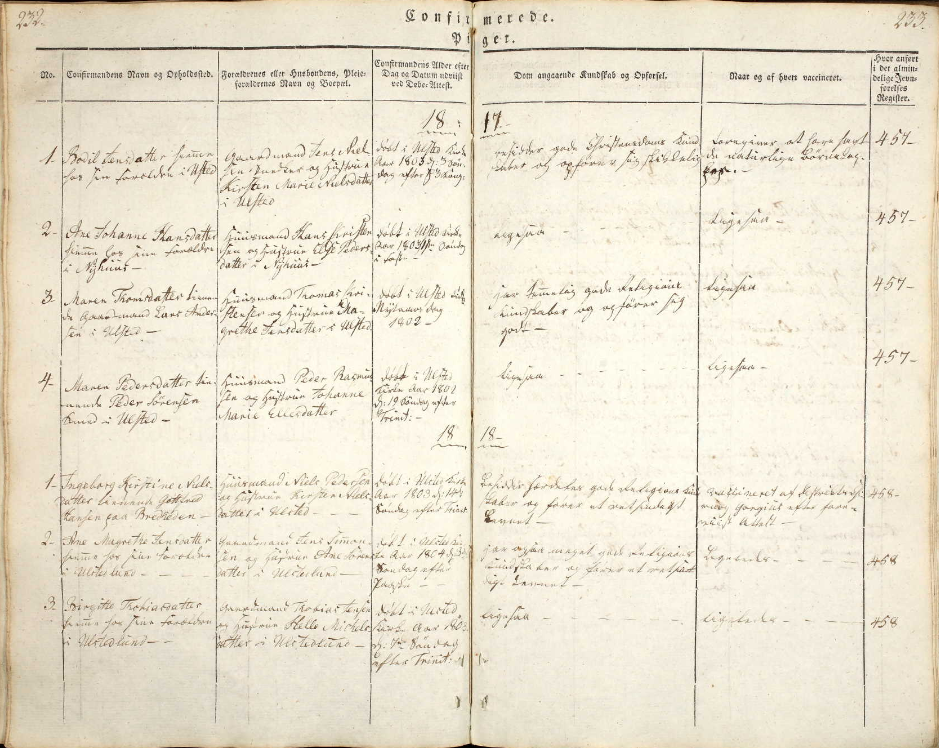 232.
Confirmerede.
233.
Piger.
No.
Confirmandens Navn og Opholdssted.
Forældrenes eller Huusbondens, Pleie-
forældrenes Navn og Boepæl.
Confirmandens Alder efter
Dag og Datum udviist
ved Døbe-Attest.
Dom angaaende Kundskab og Opførsel.
Naar og af hvem vaccineret.
Hvor anført
i det almin-
delige Jevn-
førelses
Register.
18 17
1.
Bodil Jensdatter hiemme
hos sine Forældre i Ulsted
Gaardmand Jens Niel-
sen og Hustrue
Kirsten Marie Nielsdatter
i Ulsted
døbt i Ulsted Kirke
Aar 1803 d. 3 Søn-
dag efter
besidder gode Christendoms Kund-
skaber og opfører sig skikkelig
foregiver at have havt
de naturlige Børnekop-
per.
457
2
Ane Johanne Hansdatter
hiemme hos sine Forældre
i Nyhuus
Huusmand Hans Christen-
sen og Hustrue Else Peders-
datter i Nyhuus
døbt i Ulsted Kirke
Aar 1803 Søndag
i Faste
ligesaa
ligesaa
457
3.
Maren Thomsdatter tienen-
de Gaardmand Lars Ander-
sen i Ulsted.
Huusmand Thomas Chri-
stensen og Hustrue Ma-
grethe Jensdatter i Ulsted
døbt i Ulsted Kirke
Nytaarsdag
1802
har temmelig gode Religions
Kundskaber og opfører sig
godt
Ligesaa
457
4
Maren Pedersdatter tie-
nende Peder Sørensen
Smed i Ulsted
Huusmand Peder Rasmus-
sen og Hustrue Johanne
Marie Ellesdatter
døbt i Ulsted
Kirke Aar 1801
d. 19 Søndag efter
Trinit:
ligesaa
ligesaa
457
18 18
1
Ingeborg Kirstine Niels-
datter tienende
Hansen paa Bredheden
Huusmand Niels Pedersen
og Hustrue Kirsten Niels-
datter i Ulsted
døbt i Ulsted Kirke
Aar 1803 d. 14
Søndag efter Trinit
Besidder særdeles gode Religions Kund-
skaber og fører et retsindigt
Levnet
vaccineret af
efter fore-
viist Attest
458
2.
Ane Magrethe Jensdatter
hiemme hos sine Forældre
i Ulstedlund
Gaardmand Jens Simon-
sen og Hustrue Ane Sørens-
datter i Ulstedlund
døbt i Ulsted Kir-
ke Aar 1804
Søndag efter
Paaske
har ogsaa meget gode Religions
Kundskaber og fører et
Levnet
Ligeledes
458
3.
Birgitte Thobiasdatter
hiemme hos sine Forældre
i Ulstedlund
Gaardmand Tobias Jensen
og Hustrue Helle Michels-
datter i Ulstedlund
døbt i Ulsted
Kirke Aar
Søndag
efter Trinit:
ligesaa
ligeledes
458